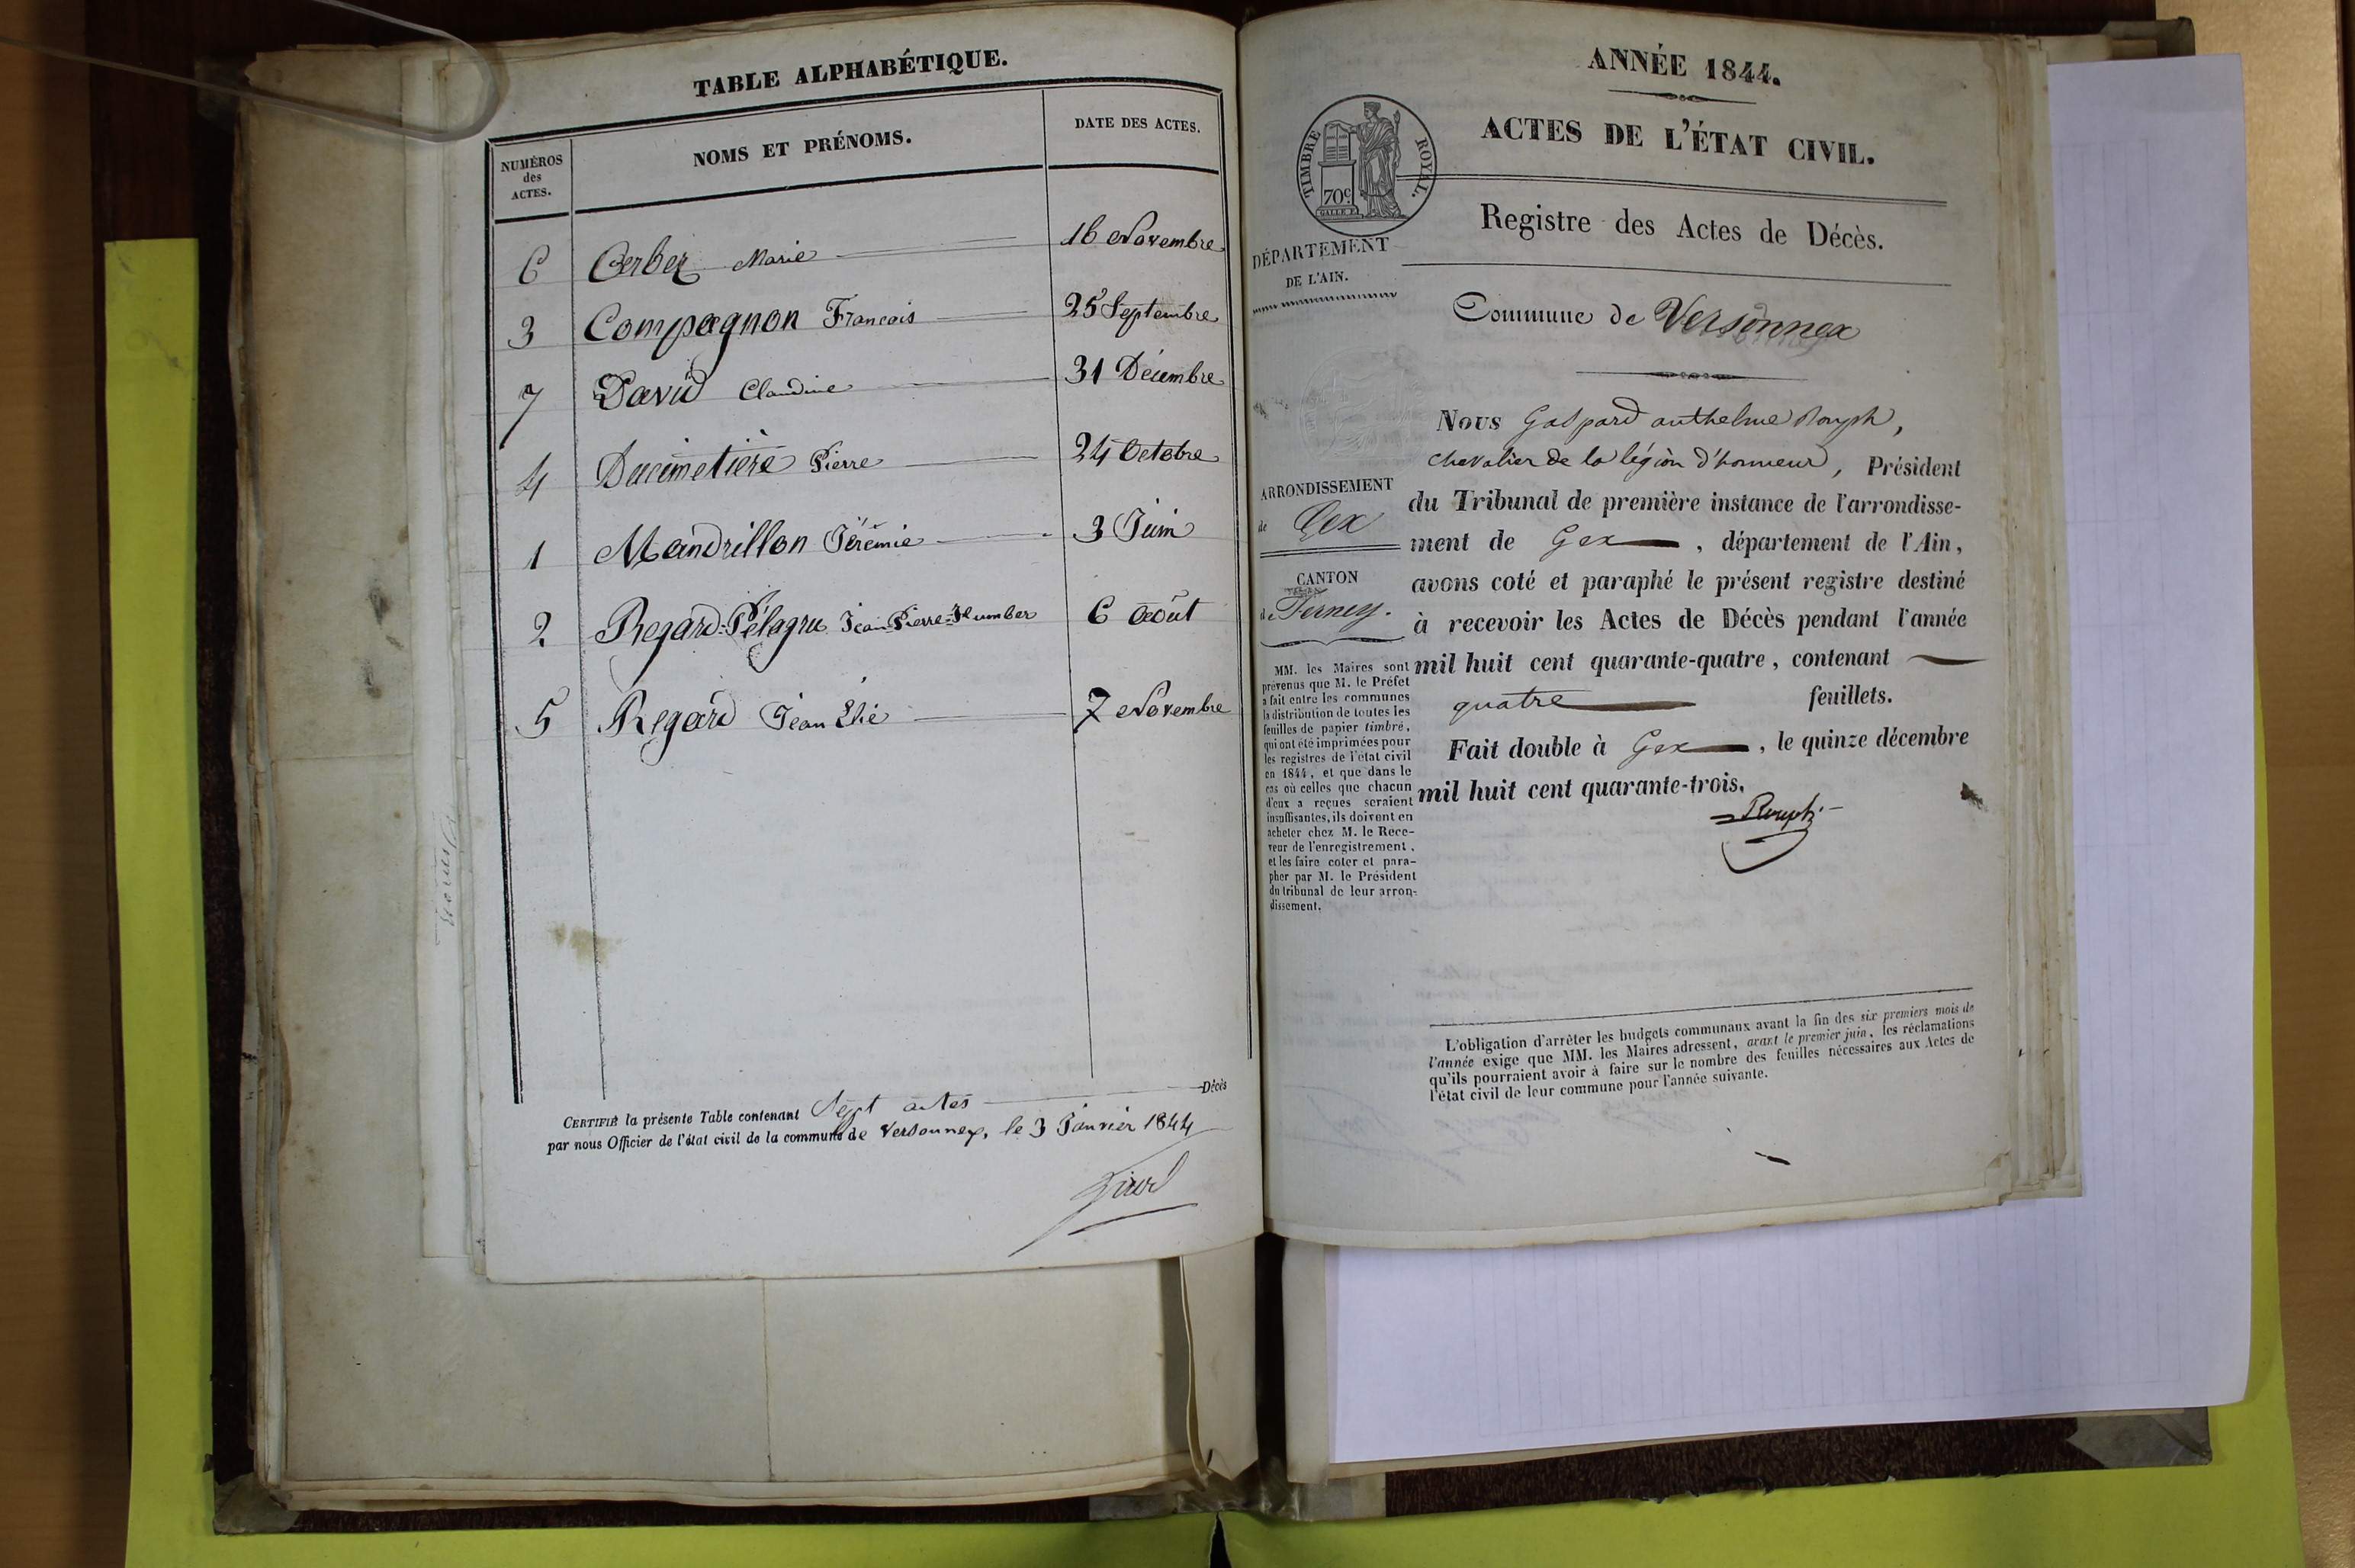 TABLE ALPHABÉTIQUE.
NUMÉROS
des
ACTES.
NOMS ET PRÉNOMS.
DATE DES ACTES.
6 Cerbez Marie 16 Novembre
3 Compagnon Francois 25 Septembre
7 David Claudine 31 Décembre
4 Ducimetière Pierre 24 Octobre
1 Mandrillon Jérémie 3 Juin
2 Regard-Pélagru Jean-Pierre-Humber 6 Août
5 Regard Jean Elie 7 Novembre
CERTIFIÉ la présente Table contenant Sept actes Décès
par nous Officier de l'état civil de la commune de Versonnex, le 3 Janvier 1844
ANNÉE 1844.
ACTES DE L'ÉTAT CIVIL.
TIMBRE ROYAL.
70c
GALLE F.
Registre des Actes de Décès.
DÉPARTEMENT
DE L'AIN.
Commune de Versonnex
ARRONDISSEMENT
de Gex
CANTON
de Ferney.
Nous Gaspard anthelme Rouph,
chevalier de la légion d'honneur, Président
du Tribunal de première instance de l'arrondisse-
ment de Gex, département de l'Ain,
avons coté et paraphé le présent registre destiné
à recevoir les Actes de Décès pendant l'année
mil huit cent quarante-quatre, contenant
quatre feuillets.
Fait double à Gex, le quinze décembre
mil huit cent quarante-trois.
Rouph
MM. les Maires sont
prévenus que M. le Préfet
a fait entre les communes
la distribution de toutes les
feuilles de papier timbré,
qui ont été imprimées pour
les registres de l'état civil
en 1844, et que dans le
cas où celles que chacun
d'eux a reçues seraient
insuffisantes, ils doivent en
acheter chez M. le Rece-
veur de l'enregistrement,
et les faire coter et para-
pher par M. le Président
du tribunal de leur arron-
dissement.
L'obligation d'arrêter les budgets communaux avant la fin des six premiers mois de
l'année exige que MM. les Maires adressent, avant le premier juin, les réclamations
qu'ils pourraient avoir à faire sur le nombre des feuilles nécessaires aux Actes de
l'état civil de leur commune pour l'année suivante.